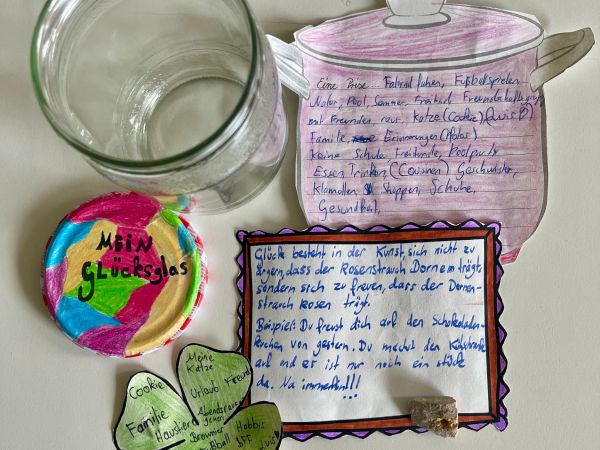 Eine Prise Fahrrad fahren, Fußballspielen
Natur, Pool, Sommer, Freibad Freundschaft
mit Freunden raus, Katze (Cookie) (Luis♡)
Familie, Erinnerungen (Photos)
keine Schule Freistunde, Poolparty
Essen, Trinken, (Cousinen) Geschwister,
Klamotten $ Shoppen, Schuhe,
Gesundheit,
MEIN
GLÜCKSGLAS
Glück besteht in der Kunst, sich nicht zu
ärgern, dass der Rosenstrauch Dornen trägt,
sondern sich zu freuen, dass der Dornen-
strauch Rosen trägt.
Beispiel: Du freust dich auf den Schokoladen-
kuchen von gestern. Du machst den Kühlschrank
auf und es ist nur noch ein Stück
da. Na immerhin!!!
Meine
Katze
Cookie
Urlaub Freunde
Familie
Haustiere
Brownies
Fußball
Hobbys
BFF
Luis